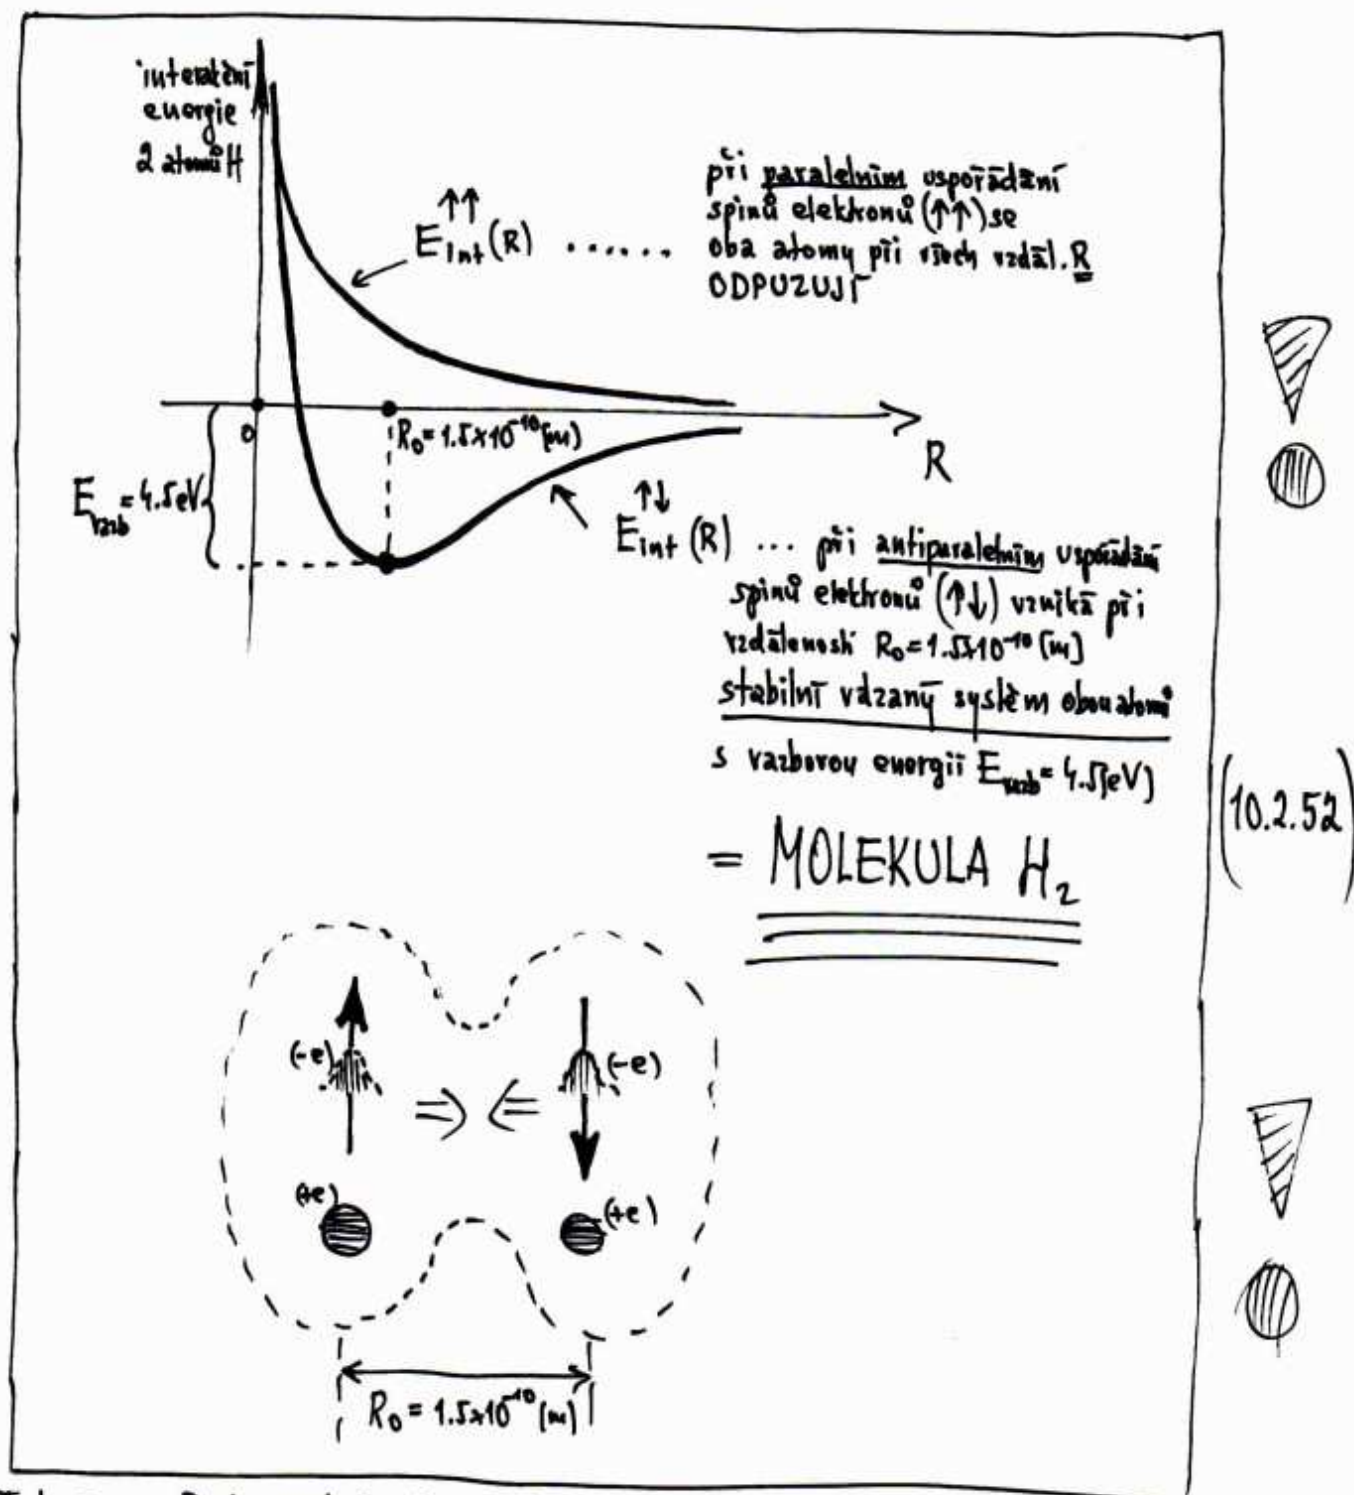 interakční
energie
2 atomů H
E↑↑int(R) ......
při paralelním uspořádání
spinů elektronů (↑↑) se
oba atomy při všech vzdál. R
ODPUZUJÍ
0
R₀ = 1.5×10⁻¹⁰ [m]
R
Evazb = 4.5eV
E↑↓int (R) ... při antiparalelním uspořádání
spinů elektronů (↑↓) vzniká při
vzdálenosti R₀ = 1.5×10⁻¹⁰ [m]
stabilní vázaný systém obou atomů
s vazbovou energií Evazb = 4.5[eV]
(10.2.52)
= MOLEKULA H₂
(-e)
(-e)
⇒ ⇐
(+e)
(+e)
R₀ = 1.5×10⁻¹⁰ [m]